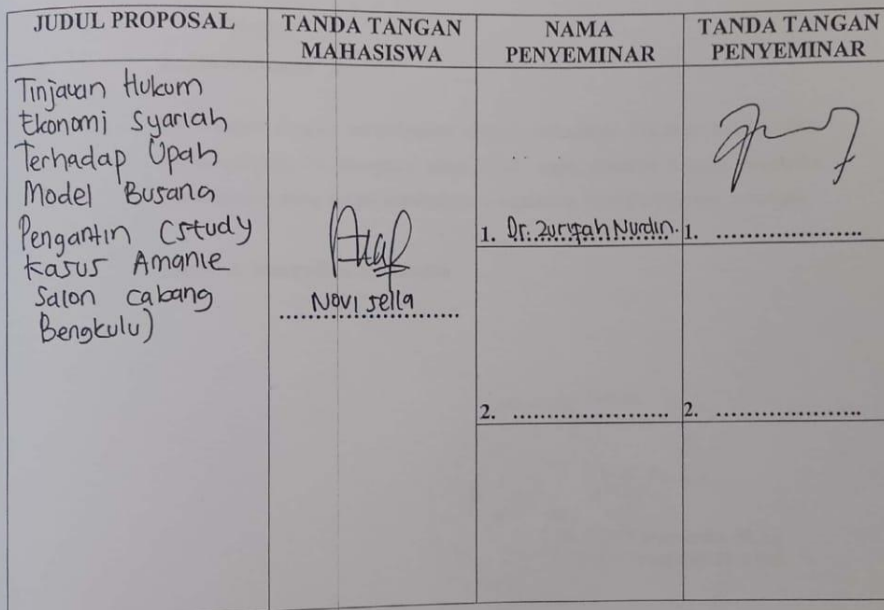 JUDUL PROPOSAL
TANDA TANGAN
MAHASISWA
NAMA
PENYEMINAR
TANDA TANGAN
PENYEMINAR
Tinjauan Hukum
Ekonomi Syariah
Terhadap Upah
Model Busana
Pengantin (Study
Kasus Amanie
Salon cabang
Bengkulu)
Novi Sella
1. Dr. Zuriyah Nurdin.
1. ....................
2. ....................
2. ....................